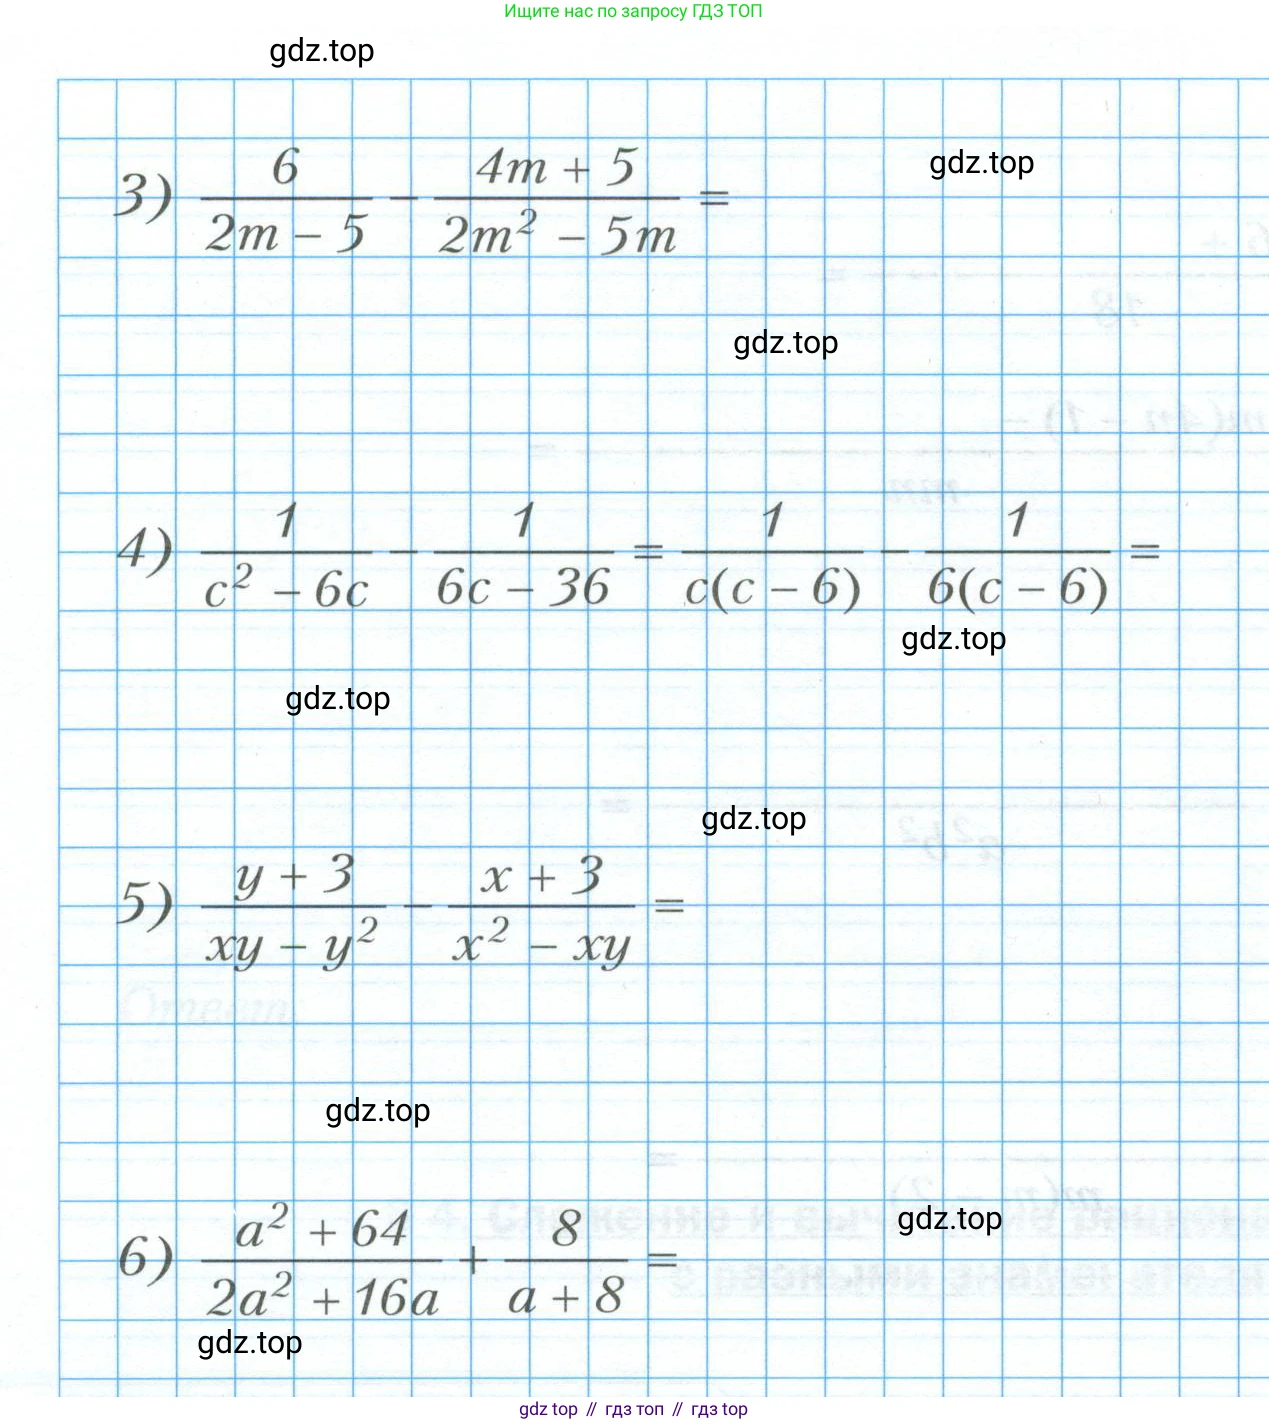 Ищите нас по запросу ГДЗ ТОП
gdz.top
3) 6/(2m − 5) − (4m + 5)/(2m² − 5m) =
gdz.top
gdz.top
4) 1/(c² − 6c) − 1/(6c − 36) = 1/(c(c − 6)) − 1/(6(c − 6)) =
gdz.top
gdz.top
gdz.top
5) (y + 3)/(xy − y²) − (x + 3)/(x² − xy) =
gdz.top
gdz.top
6) (a² + 64)/(2a² + 16a) + 8/(a + 8) =
gdz.top
gdz top // гдз топ // гдз top